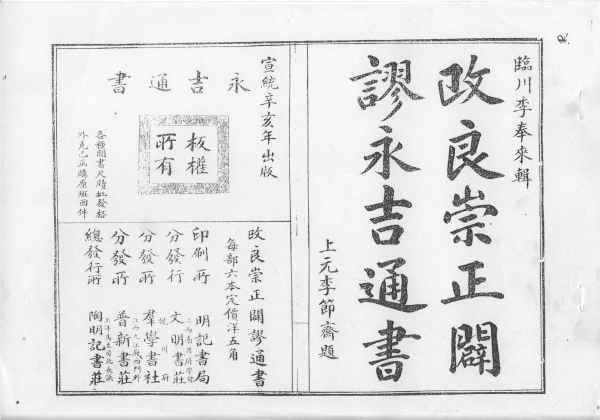 臨川李奉來輯
改良崇正闢
謬永吉通書
上元李節齋題
宣統辛亥年出版
永吉通書
板權
所有
各種閒書尺牘批發格
外克己函購原班回件
改良崇正闢謬通書
每部六本定價洋五角
印刷所 明記書局
分發行 文明書莊
分發所 群學書社
分發所 普新書莊
總發行所 陶明記書莊